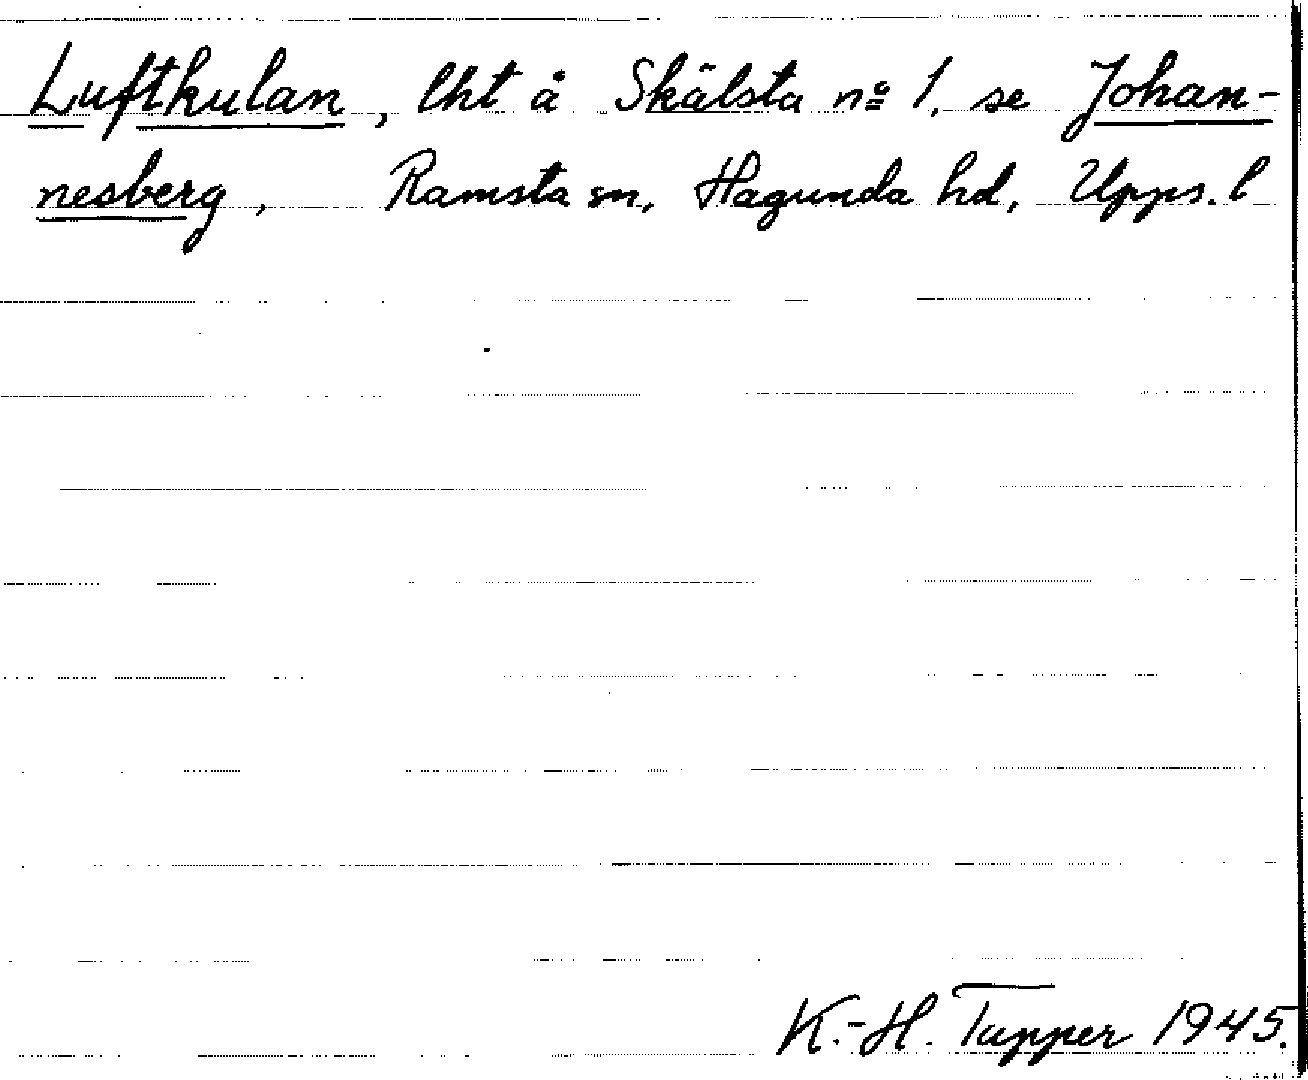 Luftkulan, lht å Skälsta nº 1, se Johan-
nesberg, Ramsta sn, Hagunda hd, Upps. l
K.-H. Tapper 1945.